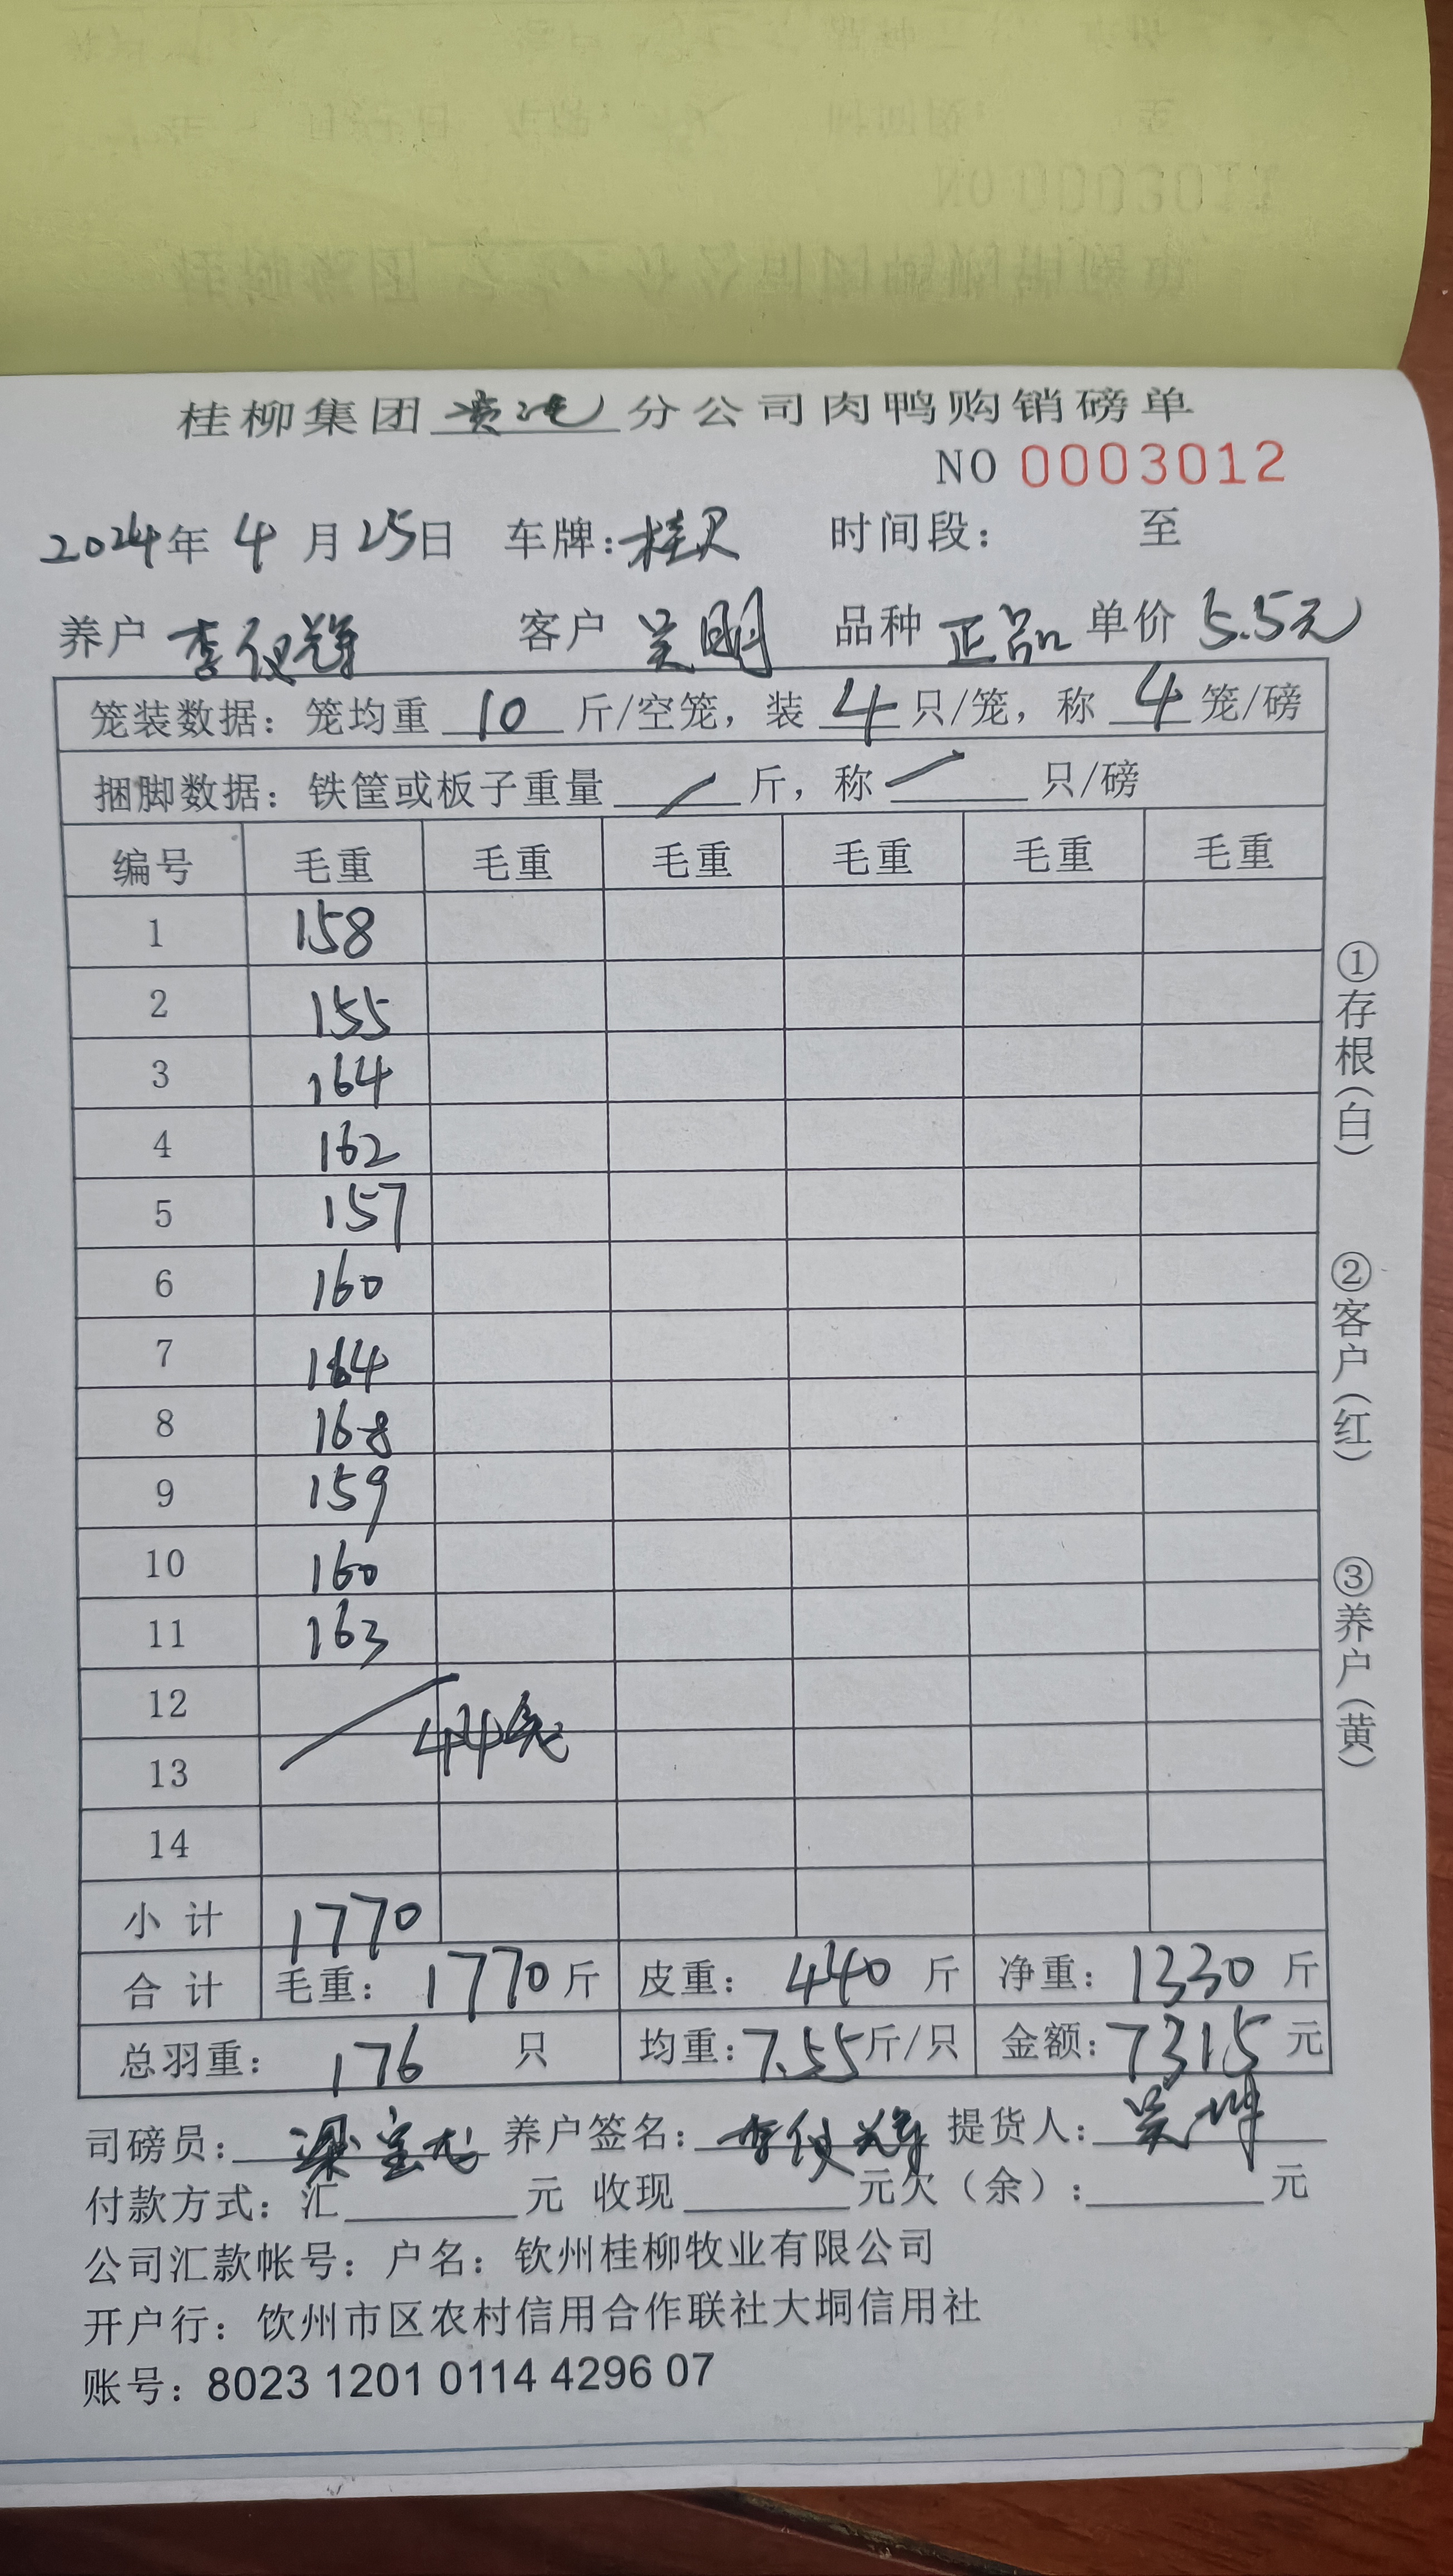 桂柳集团 分公司肉鸭购销磅单
NO 0003012
2024年 4 月 25日 车牌: 时间段: 至
养户 李仪辉 客户 吴明 品种 正品 单价 5.5元
笼装数据: 笼均重 10 斤/空笼, 装 4 只/笼, 称 4 笼/磅
捆脚数据: 铁筐或板子重量 / 斤, 称 / 只/磅
编号 毛重 毛重 毛重 毛重 毛重 毛重
1 158
2 155
3 164
4 162
5 157
6 160
7 164
8 168
9 159
10 160
11 163
12
13 44笼
14
小计 1770
合计 毛重: 1770 斤 皮重: 440 斤 净重: 1330 斤
总羽重: 176 只 均重: 7.55 斤/只 金额: 7315 元
司磅员: 养户签名: 李仪辉 提货人: 吴坤
付款方式: 汇 元 收现 元欠(余): 元
公司汇款帐号: 户名: 钦州桂柳牧业有限公司
开户行: 饮州市区农村信用合作联社大垌信用社
账号: 8023 1201 0114 4296 07
①存根(白)
②客户(红)
③养户(黄)